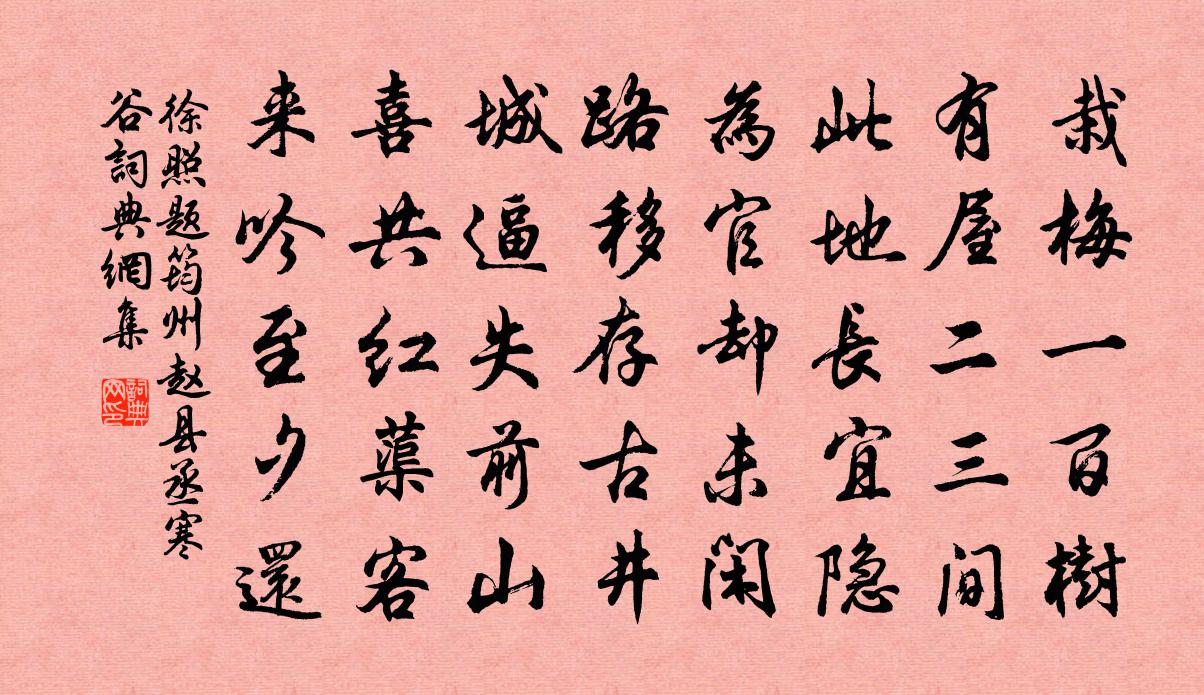 栽梅一百樹
有屋二三间
此地長宜隐
為官却未闲
路移存古井
城逼失前山
喜共红蕖客
来吟至夕還
徐照题筠州赵县丞寒
谷詞典網集
詞典
网印